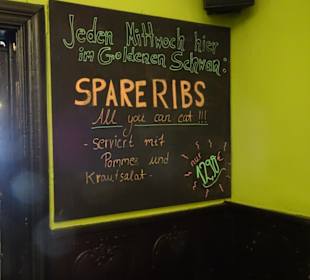 Jeden Mittwoch hier
im Goldenen Schwan:
SPARE RIBS
All you can eat !!!
- serviert mit
Pommes und
Krautsalat -
nur
12,90€